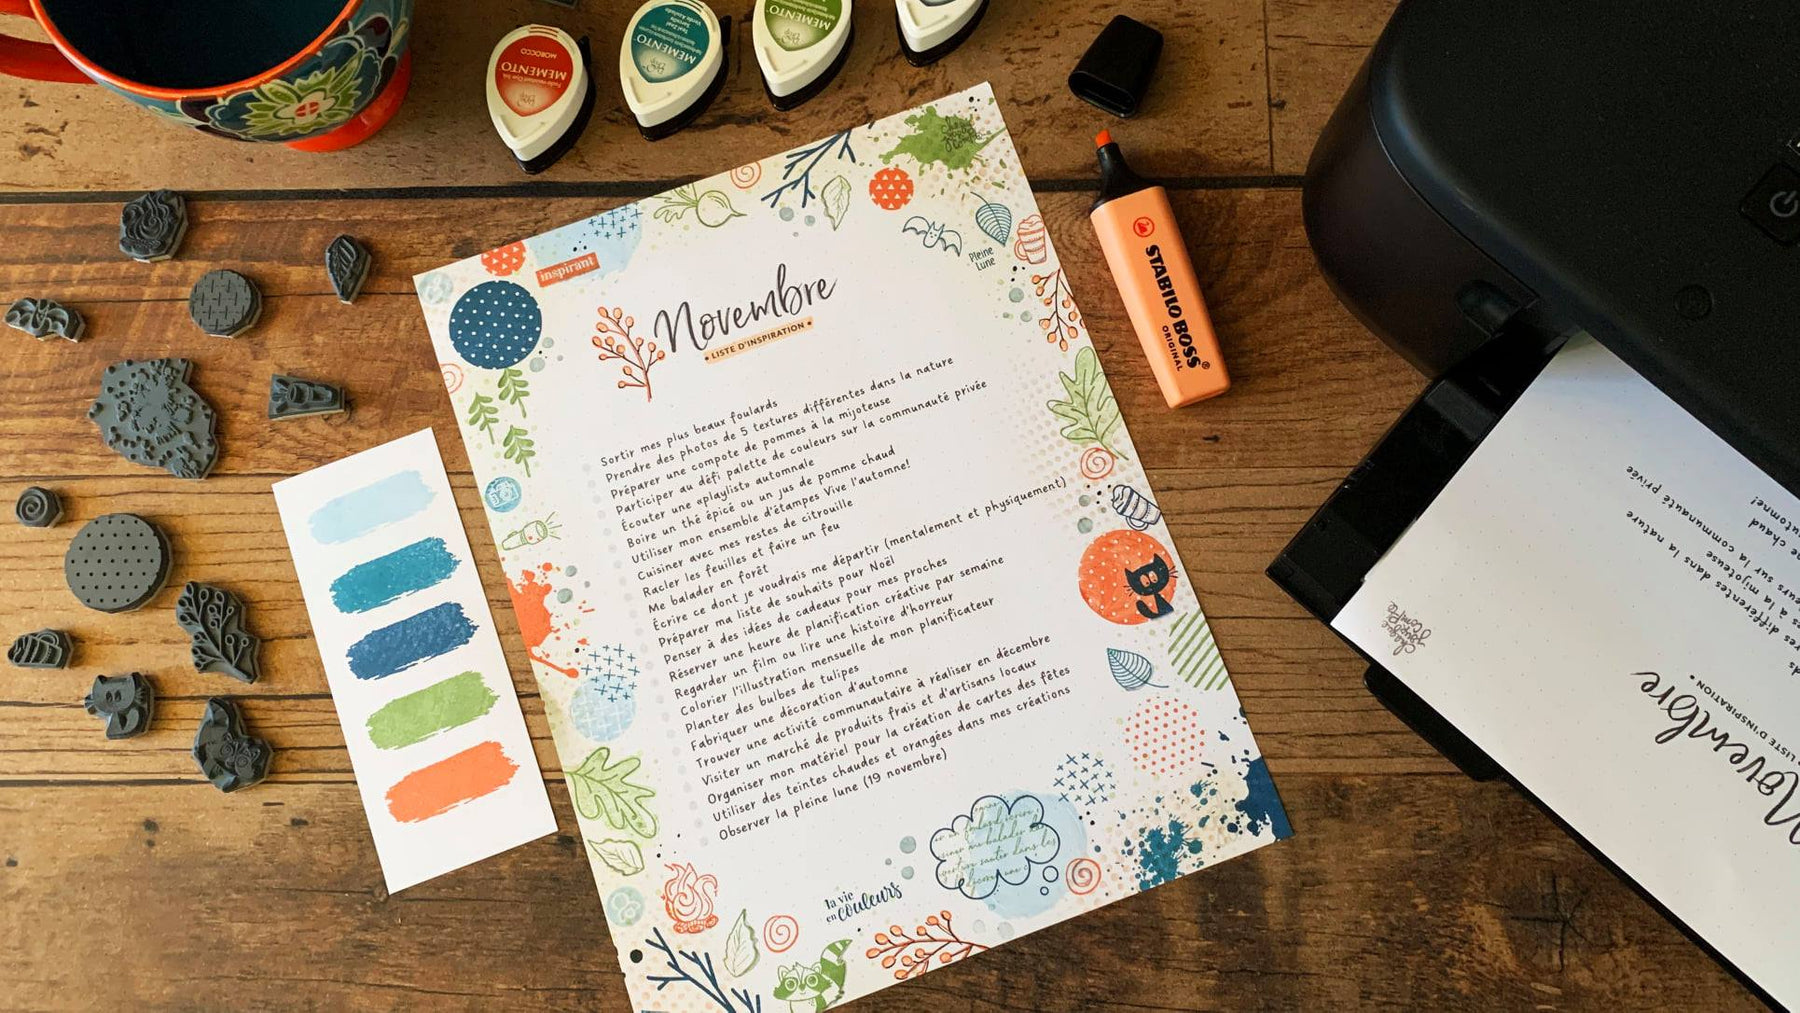 MEMENTO
MOROCCO
MEMENTO
MEMENTO
inspirant
Pleine
Lune
Novembre
• LISTE D'INSPIRATION •
Sortir mes plus beaux foulards
Prendre des photos de 5 textures différentes dans la nature
Préparer une compote de pommes à la mijoteuse
Participer au défi palette de couleurs sur la communauté privée
Écouter une «playlist» automnale
Boire un thé épicé ou un jus de pomme chaud
Utiliser mon ensemble d'étampes Vive l'automne!
Cuisiner avec mes restes de citrouille
Racler les feuilles et faire un feu
Me balader en forêt
Écrire ce dont je voudrais me départir (mentalement et physiquement)
Préparer ma liste de souhaits pour Noël
Penser à des idées de cadeaux pour mes proches
Réserver une heure de planification créative par semaine
Regarder un film ou lire une histoire d'horreur
Colorier l'illustration mensuelle de mon planificateur
Planter des bulbes de tulipes
Fabriquer une décoration d'automne
Trouver une activité communautaire à réaliser en décembre
Visiter un marché de produits frais et d'artisans locaux
Organiser mon matériel pour la création de cartes des fêtes
Utiliser des teintes chaudes et orangées dans mes créations
Observer la pleine lune (19 novembre)
la vie
en couleurs
STABILO BOSS®
ORIGINAL
Novembre
LISTE D'INSPIRATION •
différentes dans la nature
à la mijoteuse
sur la communauté privée
chaud
automne!